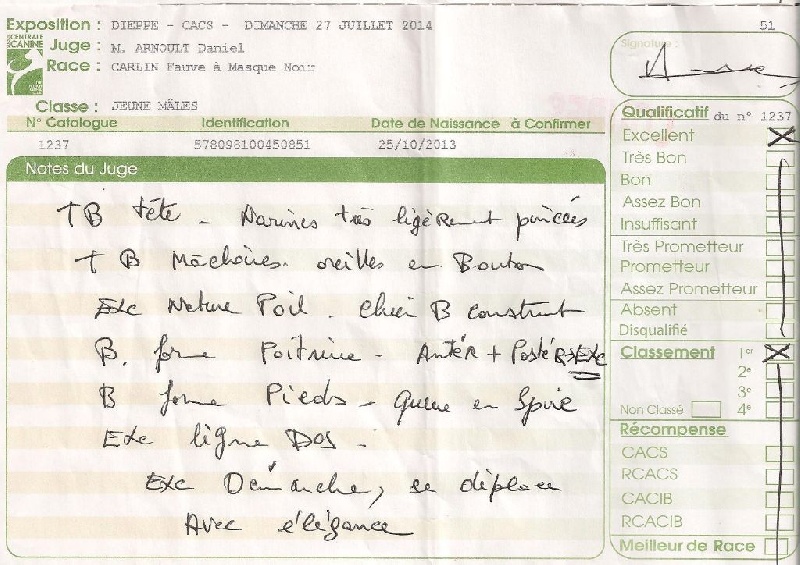 Exposition : DIEPPE - CACS - DIMANCHE 27 JUILLET 2014
51
CENTRALE CANINE
Juge : M. ARNOULT Daniel
Signature :
Race : CARLIN Fauve à Masque Noir
Classe : JEUNE MÂLES
N° Catalogue Identification Date de Naissance à Confirmer
1237 578098100450851 25/10/2013
Notes du Juge
TB tête - Narines très ligèrement pincées
TB Machoires. oreilles en Bouton
Exc Nature Poil. chien B construit
B. forme Poitrine - Antér + Postér Exc
B forme Pieds - Queue en Spire
Exc ligne DOS -
Exc Démarche, se déplace
Avec élégance
Qualificatif du n° 1237
Excellent
Très Bon
Bon
Assez Bon
Insuffisant
Très Prometteur
Prometteur
Assez Prometteur
Absent
Disqualifié
Classement 1er
2e
3e
Non Classé 4e
Récompense
CACS
RCACS
CACIB
RCACIB
Meilleur de Race